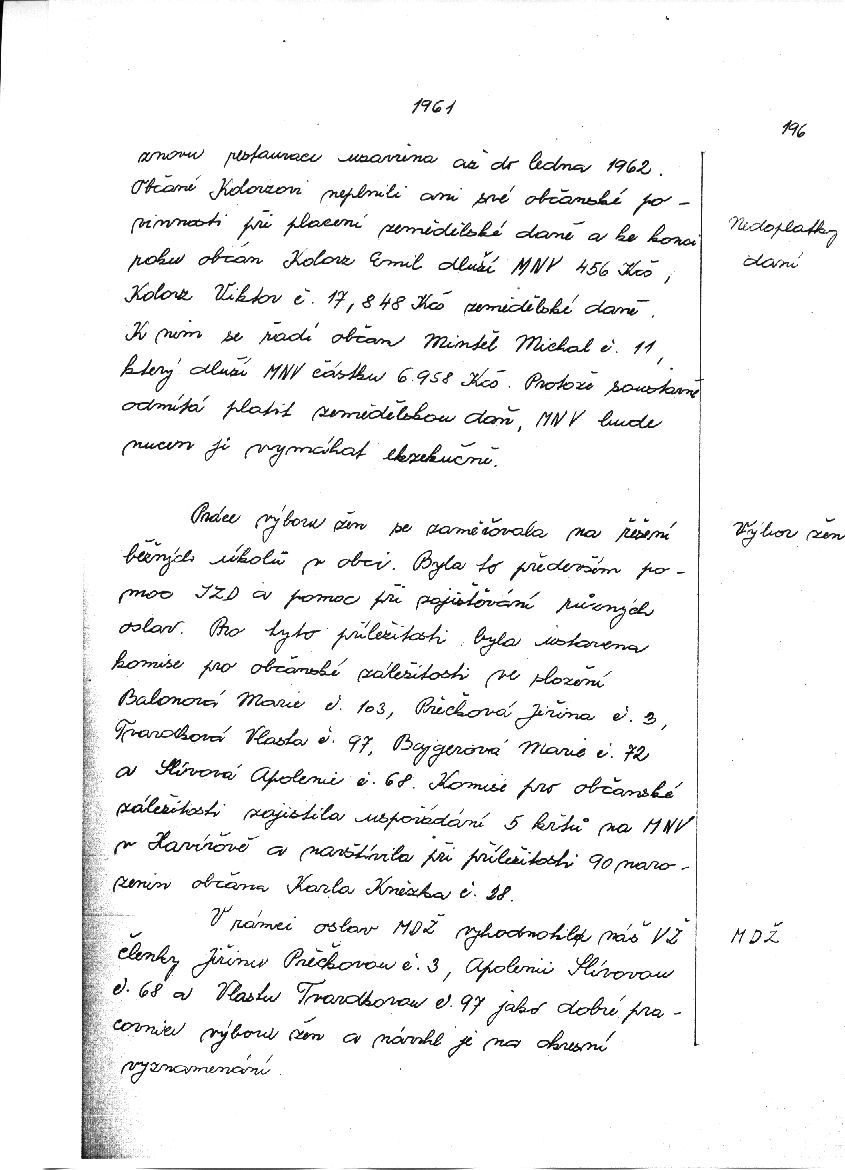 1961
196
znovu restauraci uzavřena až do ledna 1962.
Občané Kolorzovi neplnili ani své občanské po-
vinnosti při placení zemědělské daně a ke konci
Nedoplatky
roku občan Kolorz Emil dluží MNV 456 Kčs,
daní
Kolorz Viktor č. 17, 848 Kčs zemědělské daně.
K nim se řadí občan Mintěl Michal č. 11,
který dluží MNV částku 6.958 Kčs. Protože soustavně
odmítá platit zemědělskou daň, MNV bude
nucen ji vymáhat exekučně.
Práce výboru žen se zaměřovala na řešení
Výbor žen
běžných úkolů v obci. Byla to především po-
moc JZD a pomoc při zajišťování různých
oslav. Pro tyto příležitosti byla ustavena
komise pro občanské záležitosti ve složení
Balonová Marie č. 103, Préčková Jiřina č. 3,
Tvardková Vlasta č. 97, Bajgerová Marie č. 72
a Slívová Apolenie č. 68. Komise pro občanské
záležitosti zajistila uspořádání 5 křtů na MNV
v Havířově a navštívila při příležitosti 90 naro-
zenin občana Karla Knězka č. 28.
V rámci oslav MDŽ vyhodnotila náš VŽ
MDŽ
členky Jiřinu Préčkovou č. 3, Apolenii Slívovou
č. 68 a Vlastu Tvardkovou č. 97 jako dobré pra-
covnice výboru žen a návrhl je na okresní
vyznamenání.